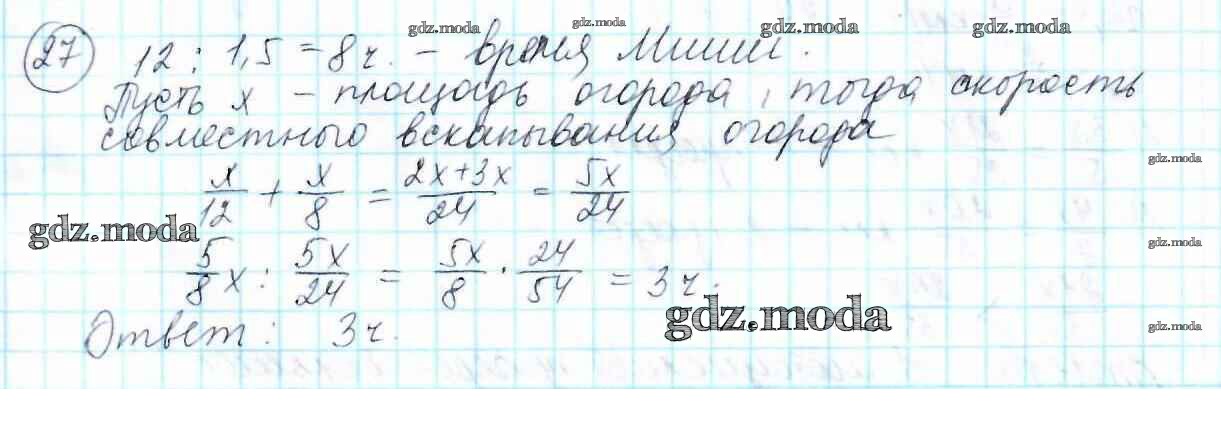 27 12 : 1,5 = 8 ч. – время Миши.
Пусть x – площадь огорода, тогда скорость
совместного вскапывания огорода
x/12 + x/8 = (2x+3x)/24 = 5x/24
5/8 x : 5x/24 = 5x/8 · 24/54 = 3 ч.
Ответ: 3 ч.
gdz.moda
gdz.moda
gdz.moda
gdz.moda
gdz.moda
gdz.moda
gdz.moda
gdz.moda
gdz.moda